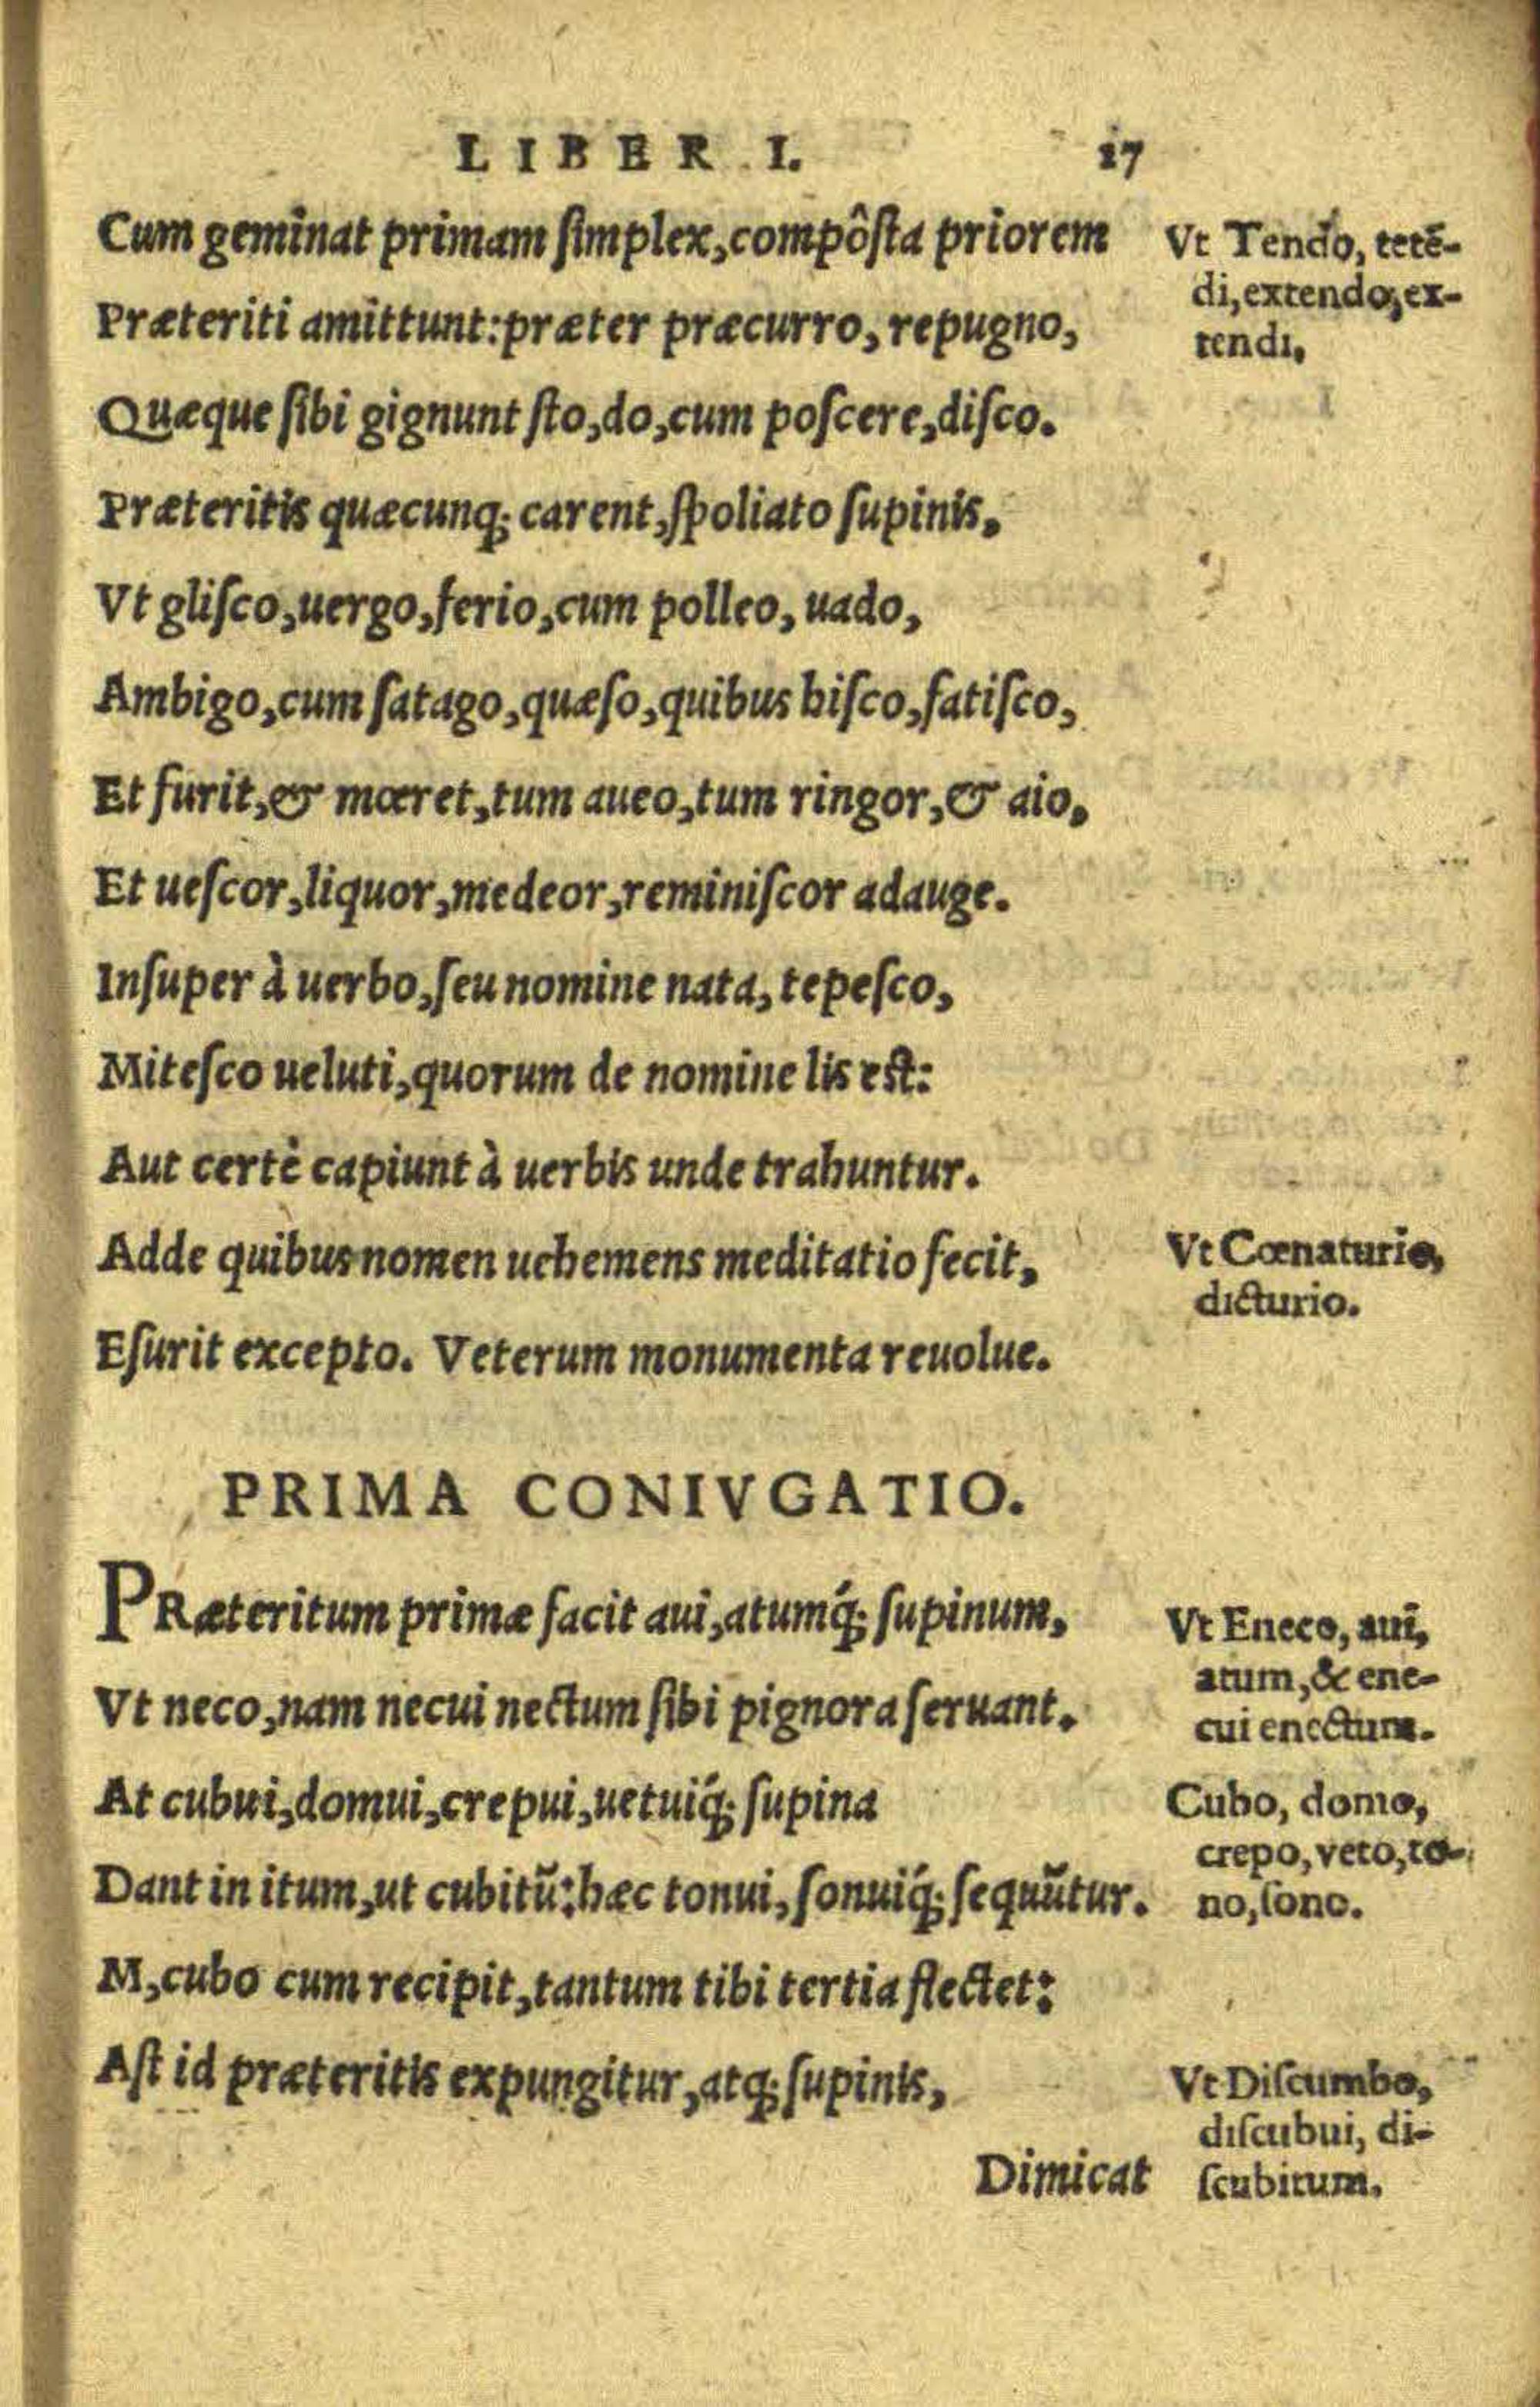 LIBER I. 17
Cum geminat primam ſimplex, compôſta priorem
Præteriti amittunt: præter præcurro, repugno,
Quæque ſibi gignunt ſto, do, cum poſcere, diſco.
Præteritis quæcunq; carent, ſpoliato ſupinis,
Vt gliſco, uergo, ferio, cum polleo, uado,
Ambigo, cum ſatago, quæſo, quibus hiſco, fatiſco,
Et furit, & mœret, tum aueo, tum ringor, & aio,
Et ueſcor, liquor, medeor, reminiſcor adauge.
Inſuper à uerbo, ſeu nomine nata, tepeſco,
Miteſco ueluti, quorum de nomine lis eſt:
Aut certè capiunt à uerbis unde trahuntur.
Adde quibus nomen uehemens meditatio fecit,
Eſurit excepto. Veterum monumenta reuolue.
PRIMA CONIVGATIO.
PRæteritum primæ facit aui, atumq́; ſupinum,
Vt neco, nam necui nectum ſibi pignora ſeruant.
At cubui, domui, crepui, uetuiq́; ſupina
Dant in itum, ut cubitũ: hæc tonui, ſonuiq́; ſequũtur.
M, cubo cum recipit, tantum tibi tertia flectet:
Aſt id præteritis expungitur, atq; ſupinis,
Dimicat
Vt Tendo, tetē-
di, extendo, ex-
tendi,
Vt Cœnaturio,
dicturio.
Vt Eneco, aui,
atum, & ene-
cui enectum.
Cubo, domo,
crepo, veto, to-
no, ſono.
Vt Diſcumbo,
diſcubui, di-
ſcubitum.